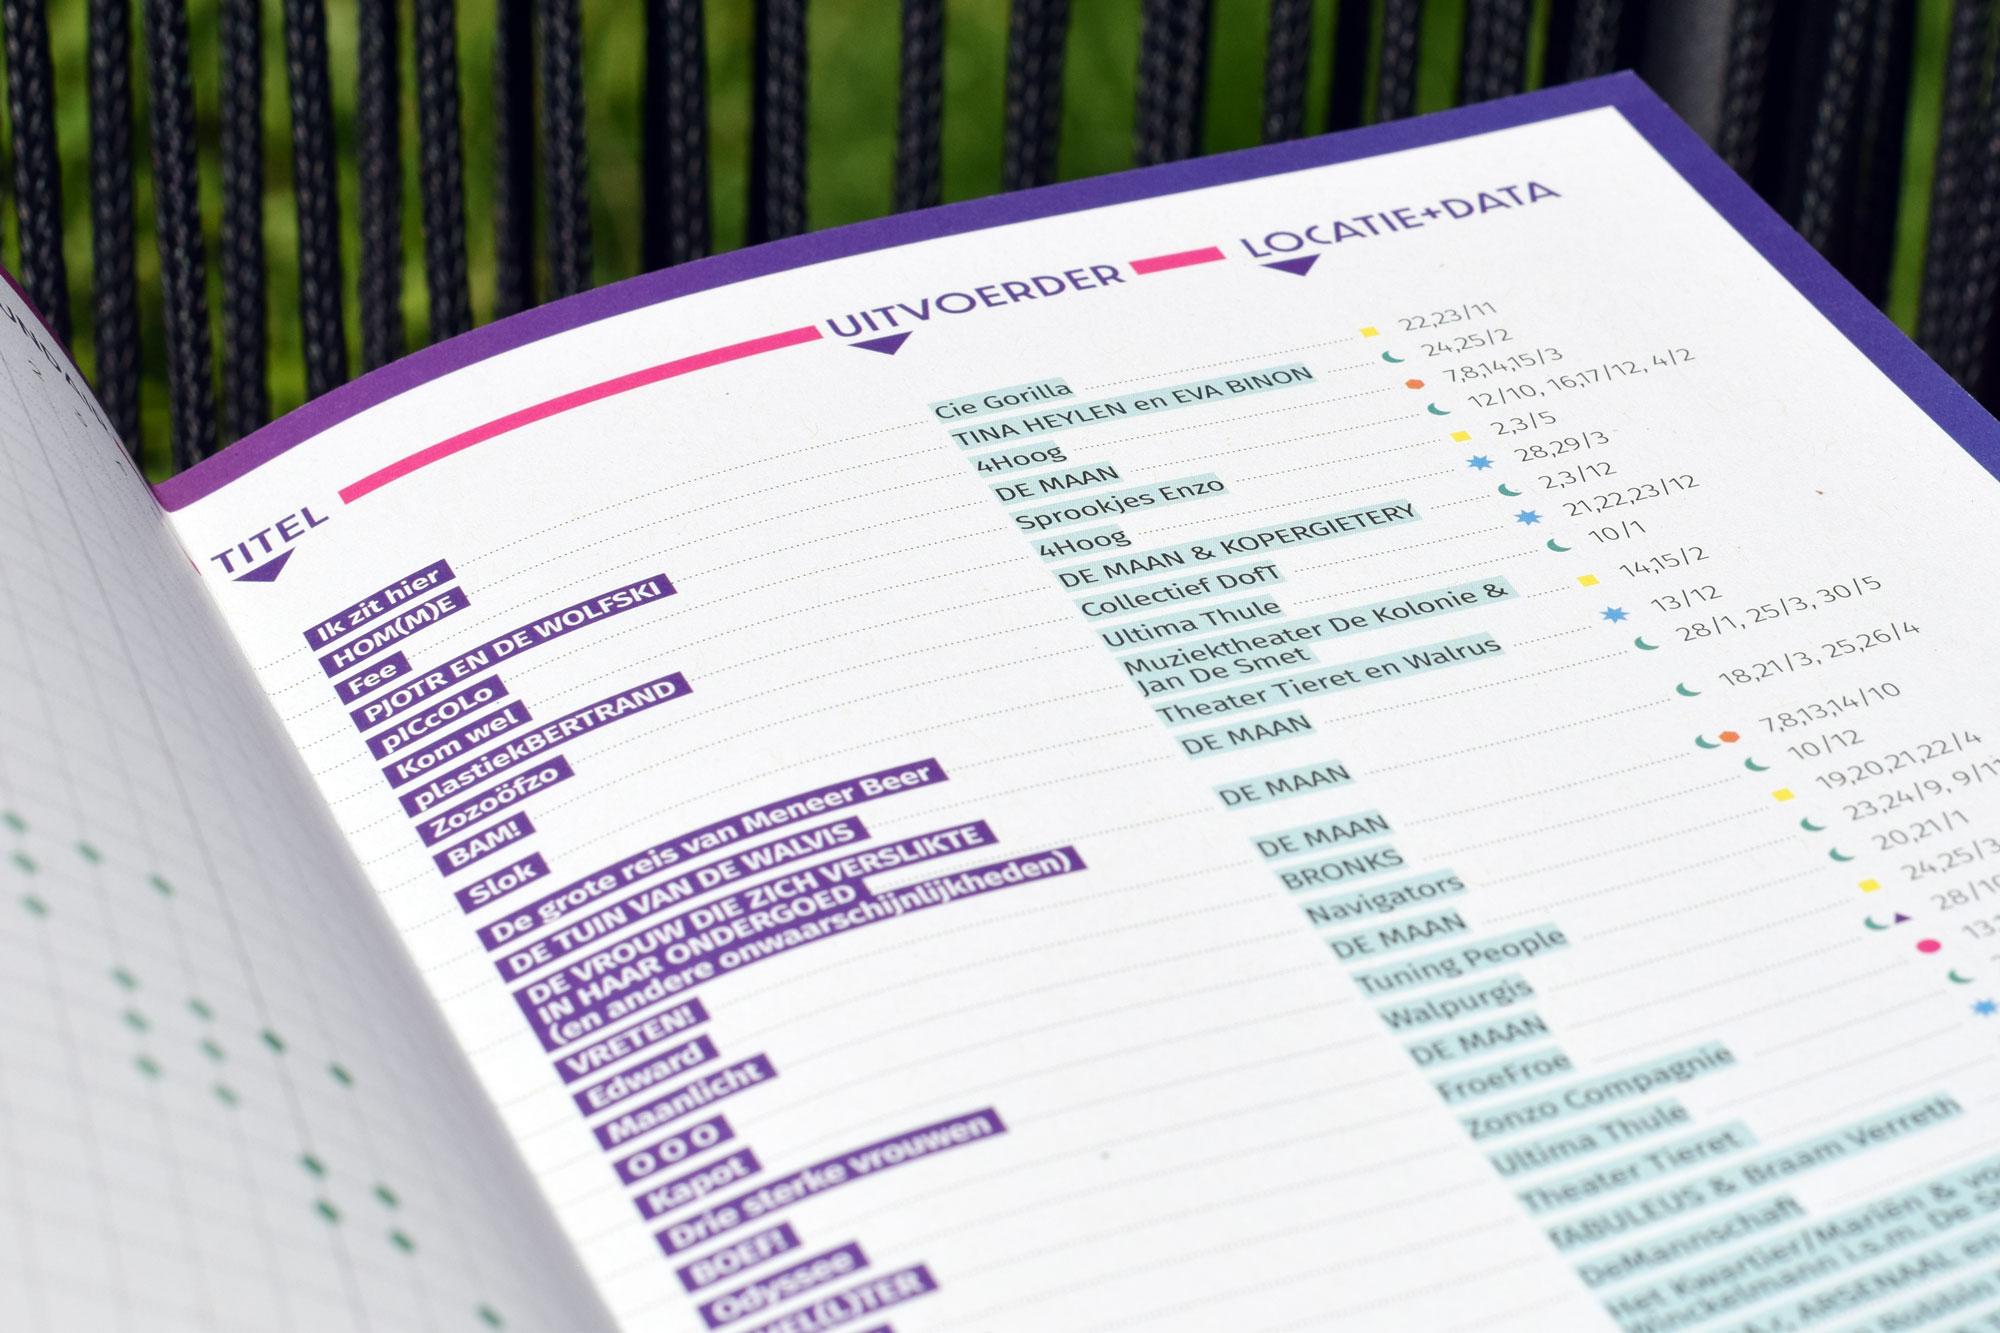 TITEL UITVOERDER LOCATIE+DATA
Ik zit hier Cie Gorilla 22,23/11
HOM(M)E TINA HEYLEN en EVA BINON 24,25/2
Fee 4Hoog 7,8,14,15/3
PJOTR EN DE WOLFSKI DE MAAN 12/10, 16,17/12, 4/2
pICcOLo Sprookjes Enzo 2,3/5
Kom wel 4Hoog 28,29/3
plastiekBERTRAND DE MAAN & KOPERGIETERY 2,3/12
Zozoöfzo Collectief DofT 21,22,23/12
BAM! Ultima Thule 10/1
Slok Muziektheater De Kolonie & 14,15/2
Jan De Smet
De grote reis van Meneer Beer Theater Tieret en Walrus 13/12
DE TUIN VAN DE WALVIS DE MAAN 28/1, 25/3, 30/5
DE VROUW DIE ZICH VERSLIKTE DE MAAN 18,21/3, 25,26/4
IN HAAR ONDERGOED
(en andere onwaarschijnlijkheden)
VRETEN! DE MAAN 7,8,13,14/10
Edward BRONKS 10/12
Maanlicht Navigators 19,20,21,22/4
O O O DE MAAN 23,24/9,
Kapot Tuning People 20,21/1
Drie sterke vrouwen Walpurgis 24,25/3
BOEF! DE MAAN
Odyssee FroeFroe
Zonzo Compagnie
Ultima Thule
Theater Tieret
fABULEUS & Braam Verreth
DeMannschaft
Het Kwartier/Mariën &
Winckelmann i.s.m. De
ARSENAAL